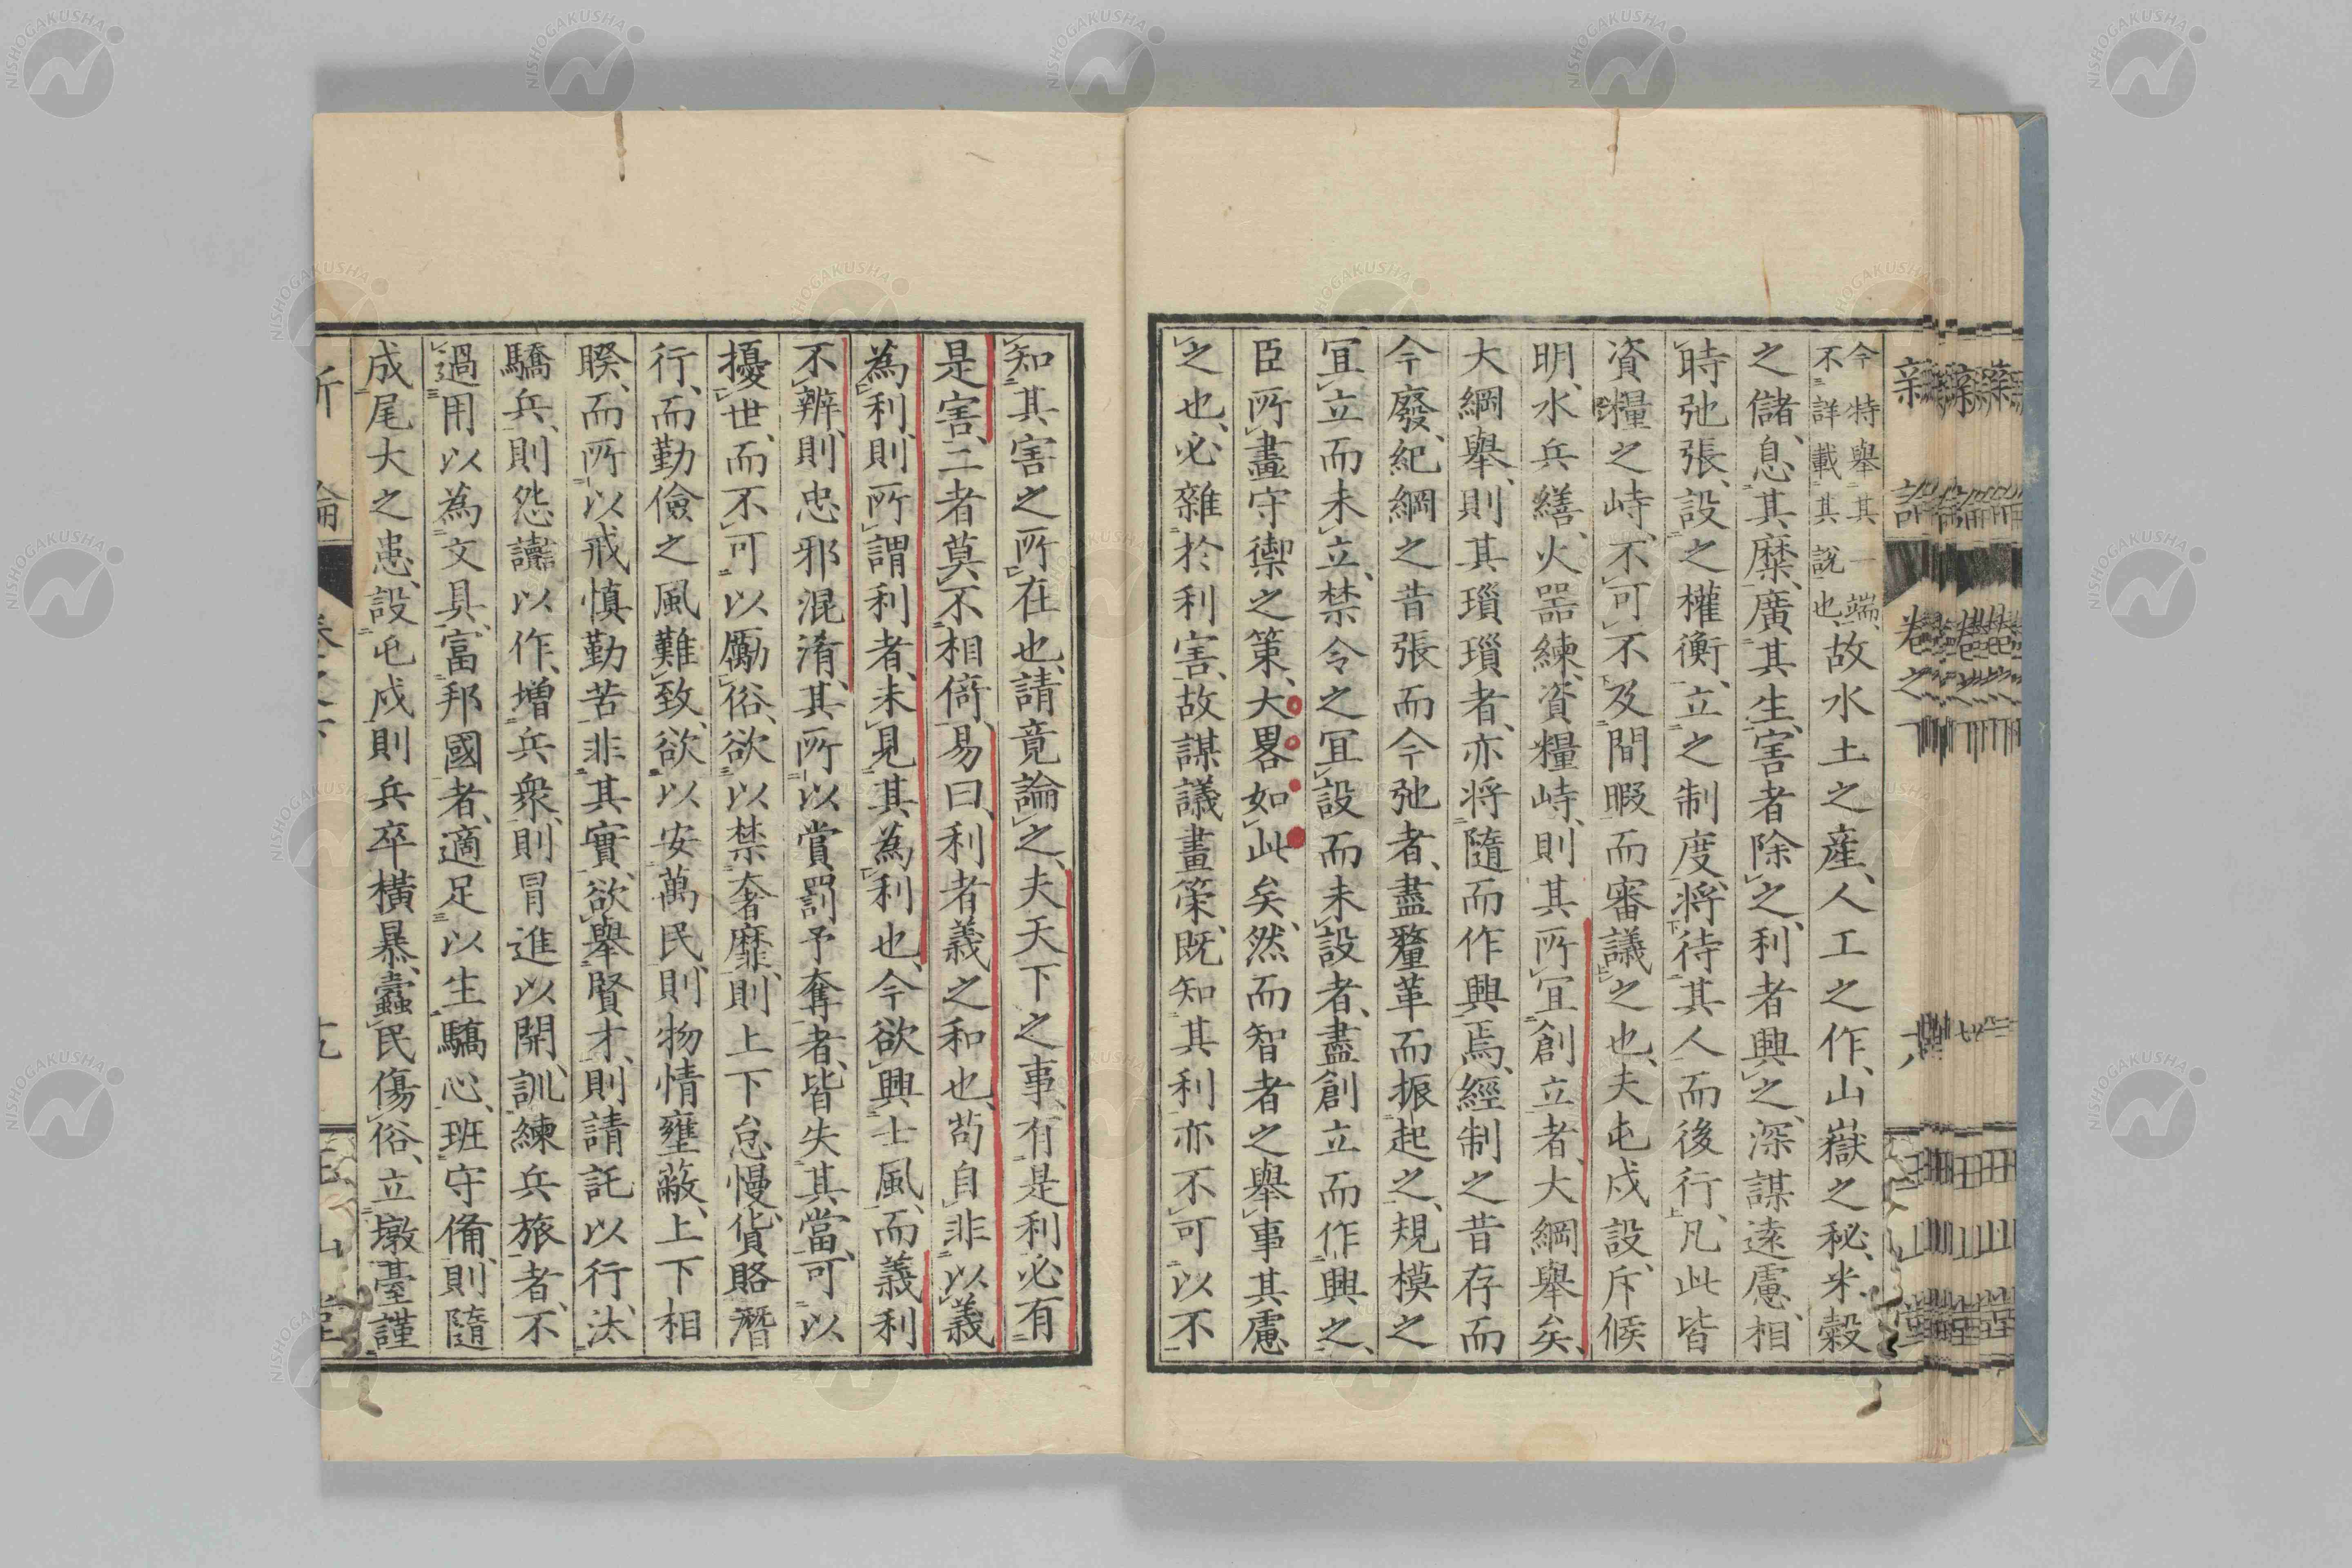 今特舉其一端、
不詳載其說也、
故水土之產、人工之作、山嶽之秘、米穀
之儲、息其糜、廣其生、害者除之、利者興之、深謀遠慮、相
時弛張、設之權衡、立之制度、將待其人而後行、凡此皆
資糧之峙、不可不及間暇而審議之也、夫屯戍設、斥候
明、水兵繕、火器練、資糧峙、則其所宜創立者、大綱舉矣、
大綱舉、則其瑣瑣者、亦將隨而作興焉、經制之昔存而
今廢、紀綱之昔張而今弛者、盡釐革而振起之、規模之
宜立而未立、禁令之宜設而未設者、盡創立而作興之、
臣所畫守禦之策、大畧如此矣、然而智者之舉事其慮
之也、必雜於利害、故謀議畫策、既知其利亦不可以不
知其害之所在也、請竟論之、夫天下之事、有是利必有
是害、二者莫不相倚、易曰、利者義之和也、苟自非以義
為利、則所謂利者、未見其為利也、今欲興士風、而義利
不辨、則忠邪混淆、其所以賞罰予奪者、皆失其當、可以
擾世、而不可以勵俗、欲以禁奢靡、則上下怠慢、貨賂潛
行、而勤儉之風難致、欲以安萬民、則物情壅蔽、上下相
睽、而所以戒慎勤苦非其實、欲舉賢才、則請託以行、汰
驕兵、則怨讟以作、增兵衆、則冒進以開、訓練兵旅者、不
過用以為文具、富邦國者、適足以生驕心、班守備、則隨
成尾大之患、設屯戍則兵卒橫暴、蠹民傷俗、立墩臺謹
新論
卷之下
玉山堂